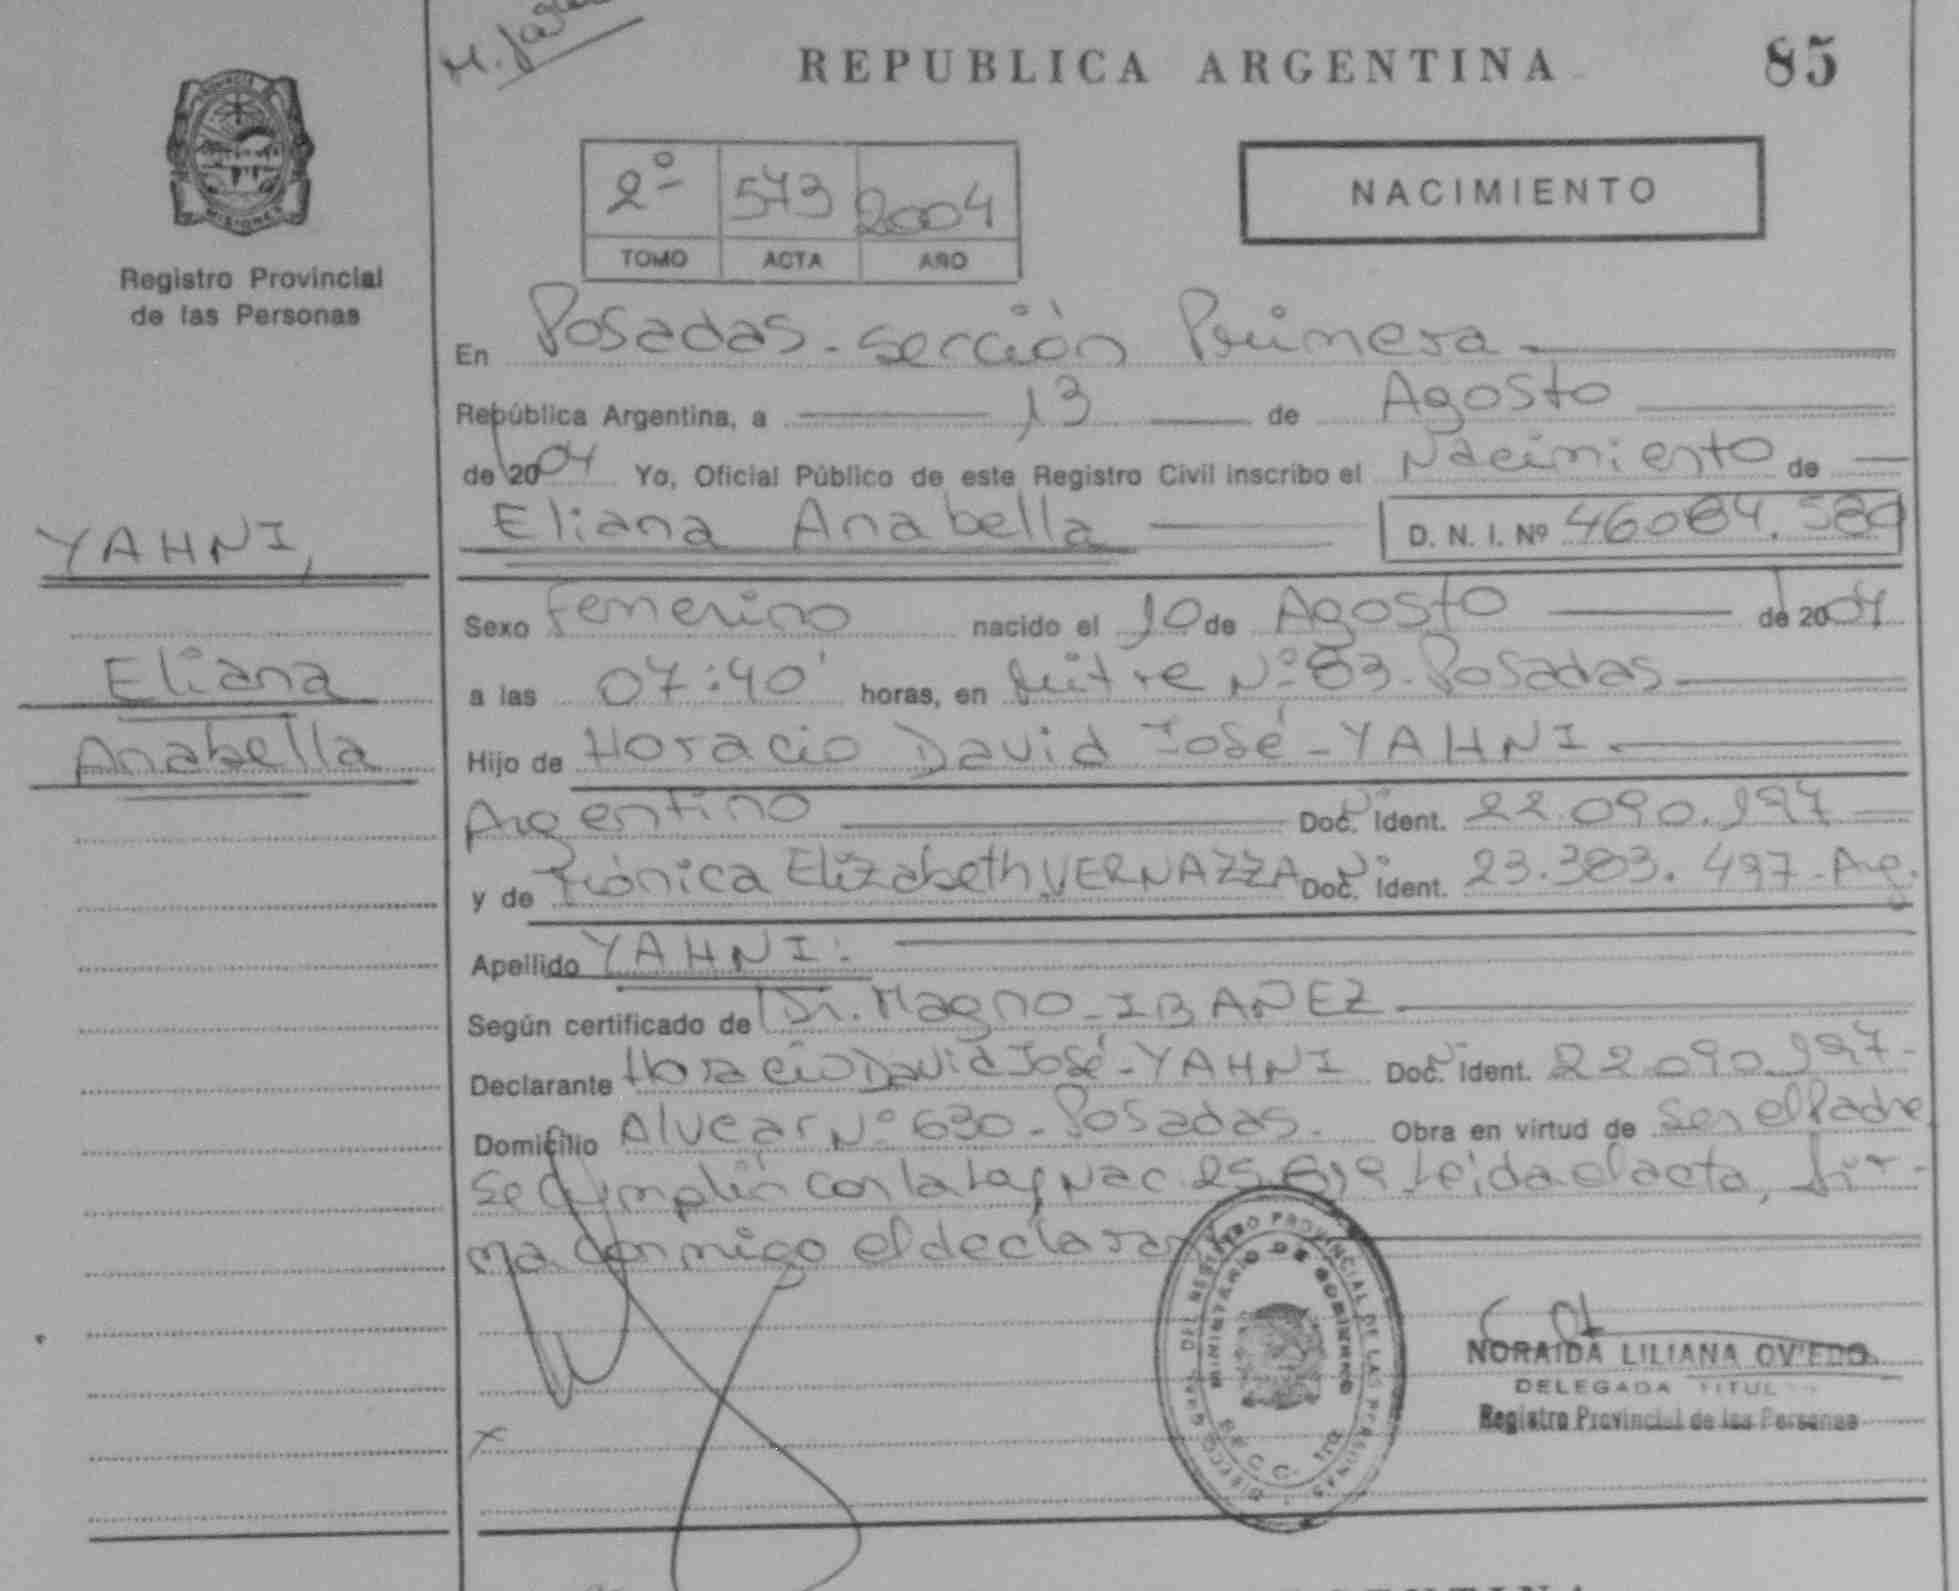 REPUBLICA ARGENTINA 85
PROVINCIA
MISIONES
Registro Provincial
de las Personas
2º 573 2004
TOMO ACTA AÑO
NACIMIENTO
En Posadas - sección Primera
República Argentina, a 13 de Agosto
de 2004 Yo, Oficial Público de este Registro Civil inscribo el Nacimiento de
Eliana Anabella D. N. I. Nº 46084.580
YAHNI,
Eliana
Anabella
Sexo femenino nacido el 10 de Agosto de 2004
a las 07:40' horas, en Mitre Nº 83 - Posadas
Hijo de Horacio David José - YAHNI
Argentino Doc. Ident. 22.090.197
y de Mónica Elizabeth VERNAZZA Doc. Ident. 23.383.497 - Arg.
Apellido YAHNI.
Según certificado de Dr. Magno - IBAÑEZ
Declarante Horacio David José - YAHNI Doc. Ident. 22.090.197-
Domicilio Alvear Nº 630 - Posadas. Obra en virtud de ser el Padre
Se cumplió con la Ley Nac. Leída el acta, fir-
ma conmigo el
REGISTRO PROVINCIAL DE LAS PERSONAS
MINISTERIO DE GOBIERNO
SECC. 1ra
NORAIDA LILIANA OVIEDO
DELEGADA TITULAR
Registro Provincial de las Personas